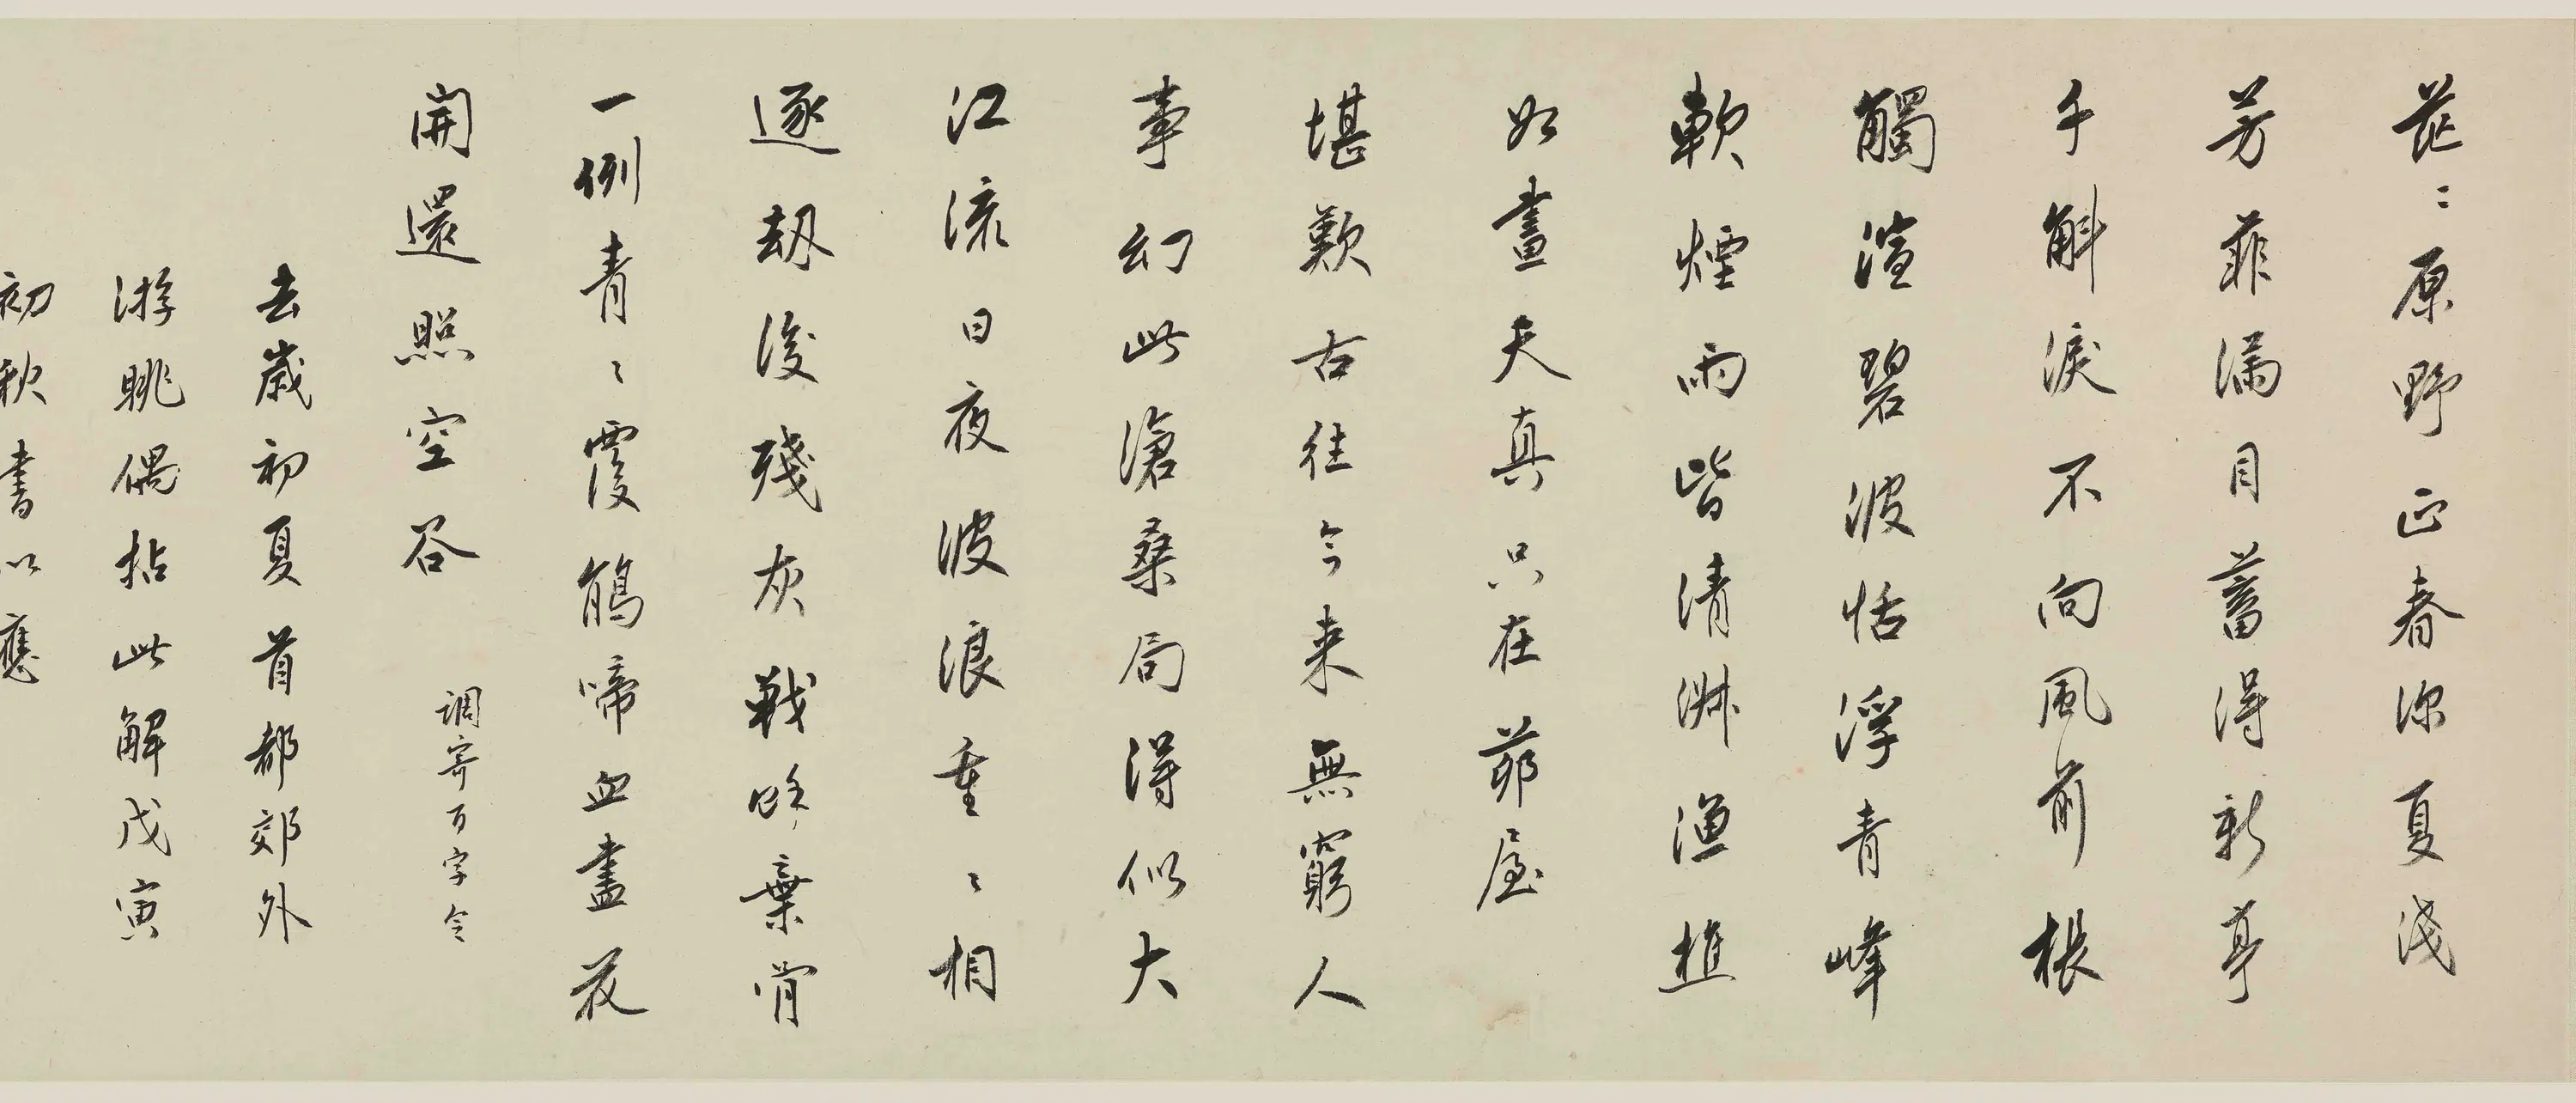 茫〻原野正春深夏淺
芳菲滿目蓄得新亭
千斛淚不向風前棖
觸渲碧波恬浮青峰
軟煙雨皆清淋漁樵
如畫天真只在茆屋
堪歎古往今来無窮人
事幻此滄桑局得似大
江流日夜波浪重〻相
逐劫後殘灰戰餘棄骨
一例青〻覆鵑啼血盡花
開還照空谷 調寄百字令
去歲初夏首都郊外
游眺偶拈此解戊寅
初秋書以應